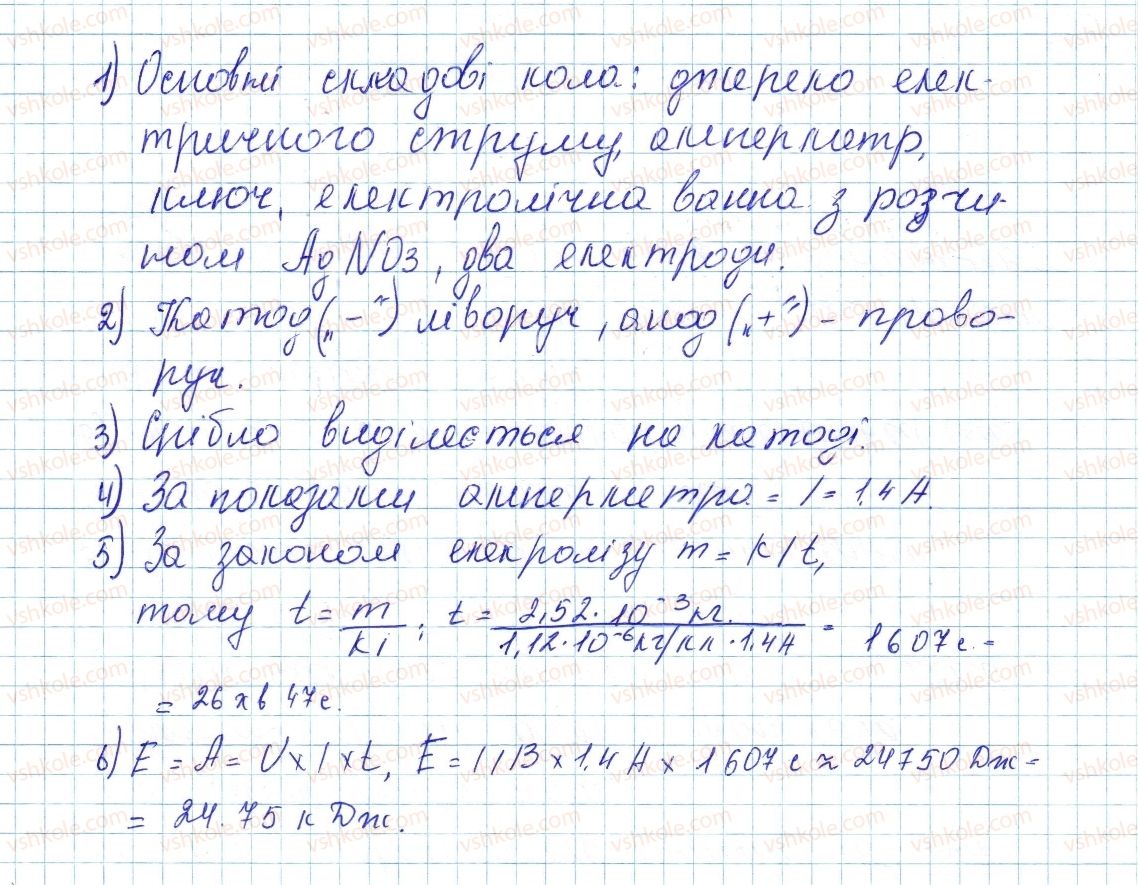 1) Основні складові кола: джерело елек-
тричного струму, амперметр,
ключ, електролічна ванна з розчи-
ном AgNO3, два електроди.
2) Катод („-") ліворуч, анод („+") - право-
руч.
3) Срібло виділяється на катоді.
4) За показами амперметра = I = 1.4 А.
5) За законом елекролізу m = kIt,
тому t = m/kI; t = 2,52·10⁻³кг./1,12·10⁻⁶кг/кл·1.4А = 1607с. =
= 26 хв 47с.
6) E = A = U×I×t, E = 11В×1.4А×1607с ≈ 24750 Дж =
= 24.75 кДж.